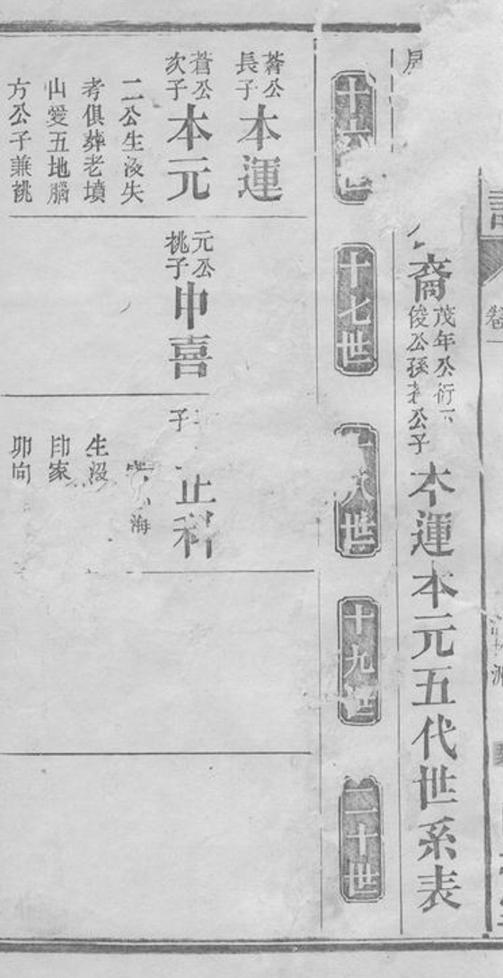 裔
茂年公衍
俊公孫公子
本運本元五代世系表
十六世
十七世
十八世
十九世
二十世
蒼公
長子
本運
蒼公
次子
本元
二公生沒失
考俱葬老墳
山愛五地腦
方公子兼祧
元公
祧子
申喜
子
正科
海
生沒
印家
卯向